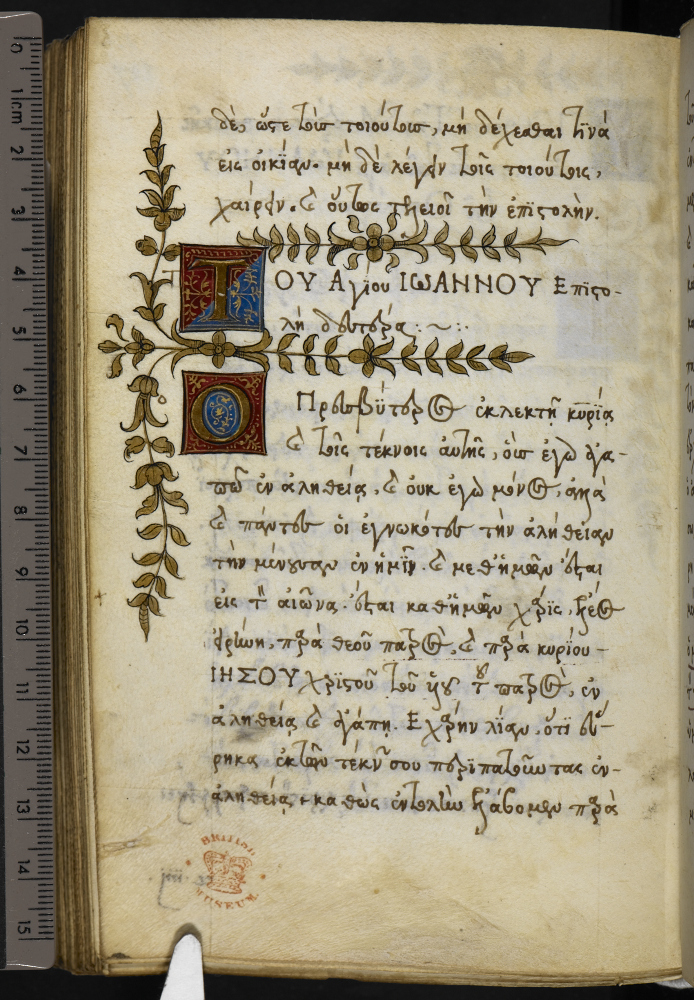 δὲ, ὥστε τοὺς τοιούτους, μὴ δέχεσθαι τινὰ
εἰς οἰκίαν. μὴ δὲ λέγειν τοῖς τοιούτοις,
χαίρειν. ϗ οὕτως τελειοῖ τὴν ἐπιστολὴν.
ΤΟΥ Αγίου ΙΩΑΝΝΟΥ Επιστο-
λὴ δευτέρα :~:
Ο Πρεσβΰτερος ἐκλεκτῆ κυρία
ϗ τοῖς τέκνοις ἀυτῆς, οὓς ἐγὼ ἀγα-
πῶ ἐν ἀληθεία, ϗ ουκ ἐγὼ μόνος, ἀλλὰ
ϗ πάντες οἱ ἐγνωκότες τὴν ἀλήθειαν
τὴν μένουσαν ἐν ἡμῖν. ϗ μεθ' ἡμῶν ἔσται
εἰς τὸν αἰῶνα. ἔσται καθ' ἡμῶν χάρϊς, ἔλεος
εἰρήνη, παρὰ θεοῦ πατρος, ϗ παρὰ κυρίου
ΙΗΣΟΥ χρϊστοῦ τοῦ ὑιοῦ τοῦ πατρος, ἐν
ἀληθεία ϗ ἀγάπη. Εχάρην λΐαν, ὅτϊ εὕ-
ρηκα ἐκ τῶν τέκνων σου περϊπατοῦντας ἐν
ἀληθεία, καθὼς ἐντολὴν ἐλάβομεν παρὰ
BRITISH
MUSEUM